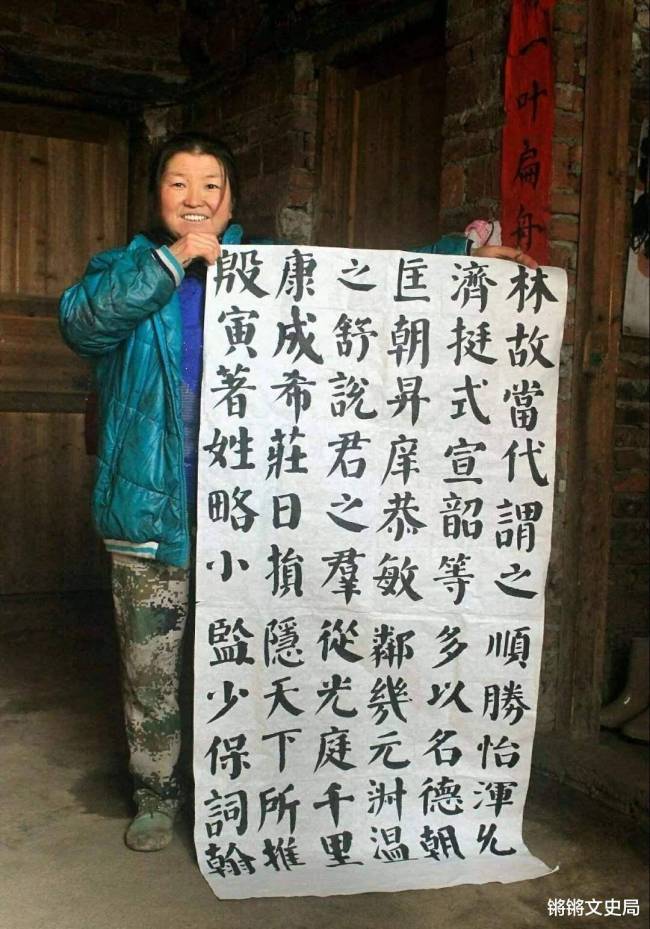 一叶扁舟
林故當代謂之順勝怡渾允
濟挺式宣韶等多以名德朝
匡朝昇庠恭敏鄰幾元淑温
之舒說君之羣從光庭千里
康成希莊日損隱天下所推
殷寅著姓略小監少保詞翰
锵锵文史局